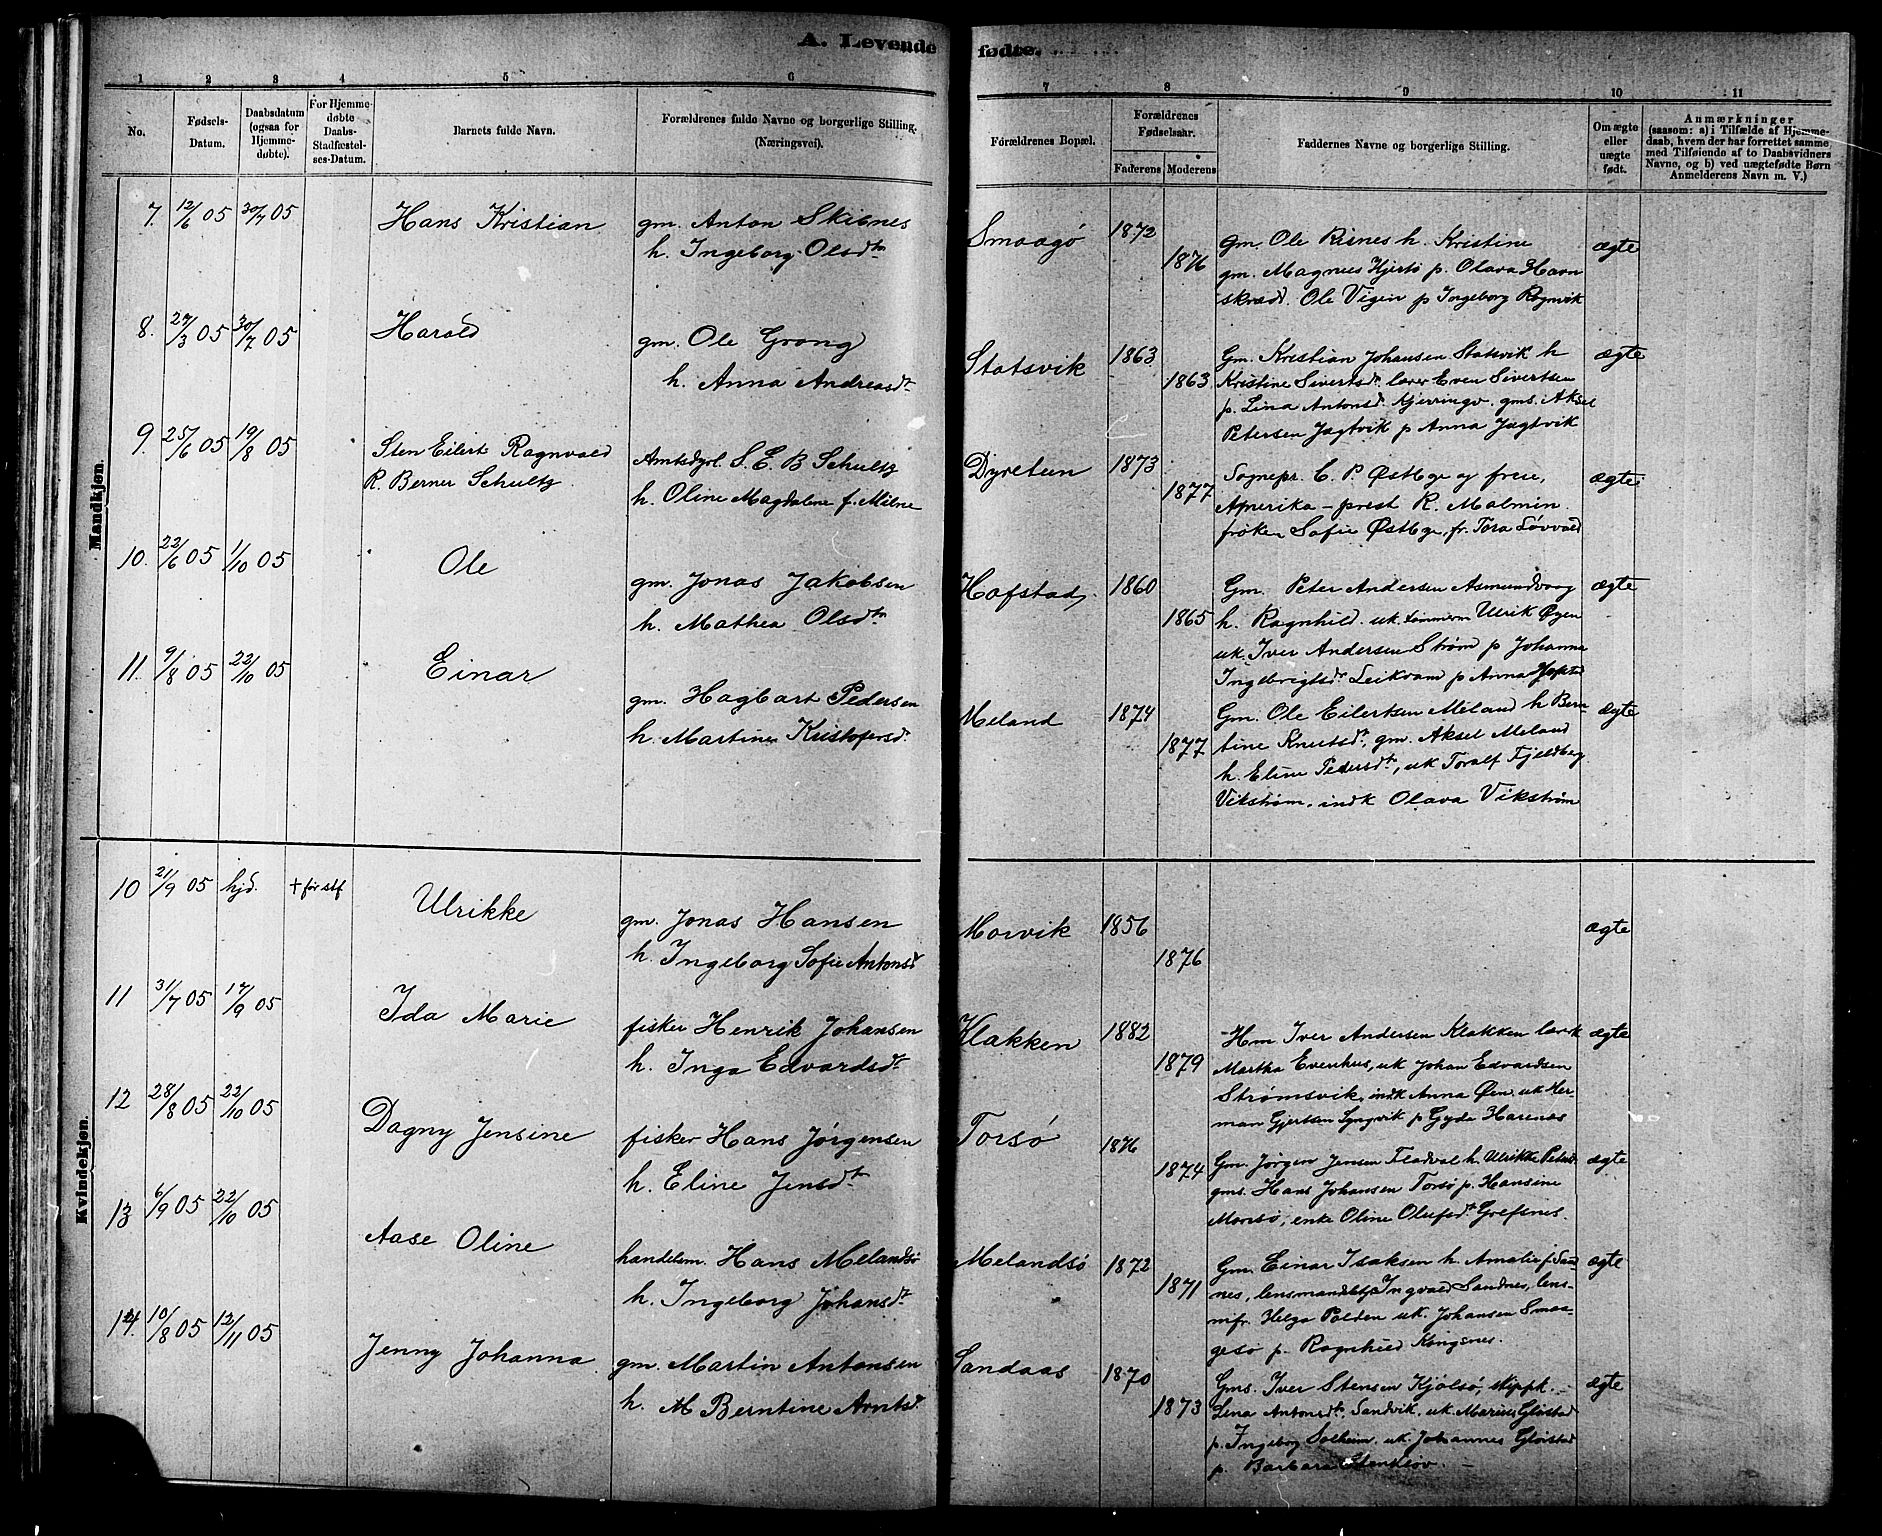 A. Levende fødte.
1 2 3 4 5 6 7 8 9 10 11
No.
Fødsels-Datum.
Daabsdatum (ogsaa for Hjemme-døbte).
For Hjemme-døbte Daabs-Stadfæstel-ses-Datum.
Barnets fulde Navn.
Forældrenes fulde Navne og borgerlige Stilling. (Næringsvei).
Forældrenes Bopæl.
Forældrenes Fødselsaar.
Faderens Moderens
Faddernes Navne og borgerlige Stilling.
Om ægte eller uægte født.
Anmærkninger
(saasom: a) i Tilfælde af Hjemme-
daab, hvem der har forrettet samme,
med Tilføiende af to Daabsvidners
Navne, og b) ved uægtefødte Børn
Anmelderens Navn m. V.)
Mandkjøn.
7. 12/6 05 30/7 05 Hans Kristian
gm. Anton Skibnes
h. Ingeborg Olsdtr
Smaagø 1872 1876
Gm. Ole Risnes h. Kristine
gm. Magnus Hjertø p. Olava Havn
Ole Vigen p Ingeborg Rognvik
ægte
8. 27/3 05 30/7 05 Harald
gm. Ole Grong
h. Anna Andreasdt
Statsvik 1863 1863
Gm. Kristian Johansen Statsvik h
Kristine Sivertsdt. lærer Even Sivertsen
p. Lina Antonsd. Kjerringv. gms. Aksel
Petersen Jægtvik p Anna Jægtvik
ægte
9. 25/6 05 19/8 05 Sten Eilert Ragnvald
R. Berner Schultz
Amtsdyrl. S. E. B Schultz
h. Oline Magdalene f. Milne
Dyreteen 1873 1877
Sognepr. C. P. Østbye og frue,
Amerika-prest R. Malmin
frøken Sofie Østbye, fr. Tora Løvvold
ægte
10. 22/6 05 1/10 05 Ole
gm. Jonas Jakobsen
h. Mathea Olsdtr
Hofstad 1860 1865
Gm. Peter Andersen Asmundvaag
h. Ragnhild. uk. tømmerm Ulrik Øyen
uk. Iver Andersen Strøm p Johanna
Ingebrigtsdr Leikvam p Anna Hofsta
ægte
11. 9/8 05 22/10 05 Einar
gm. Hagbart Pedersen
h. Martine Kristofersd.
Meland 1874 1877
Gm. Ole Eilertsen Meland h Bern-
tine Knutsdt, gm. Aksel Meland
h. Eline Pedersdt, uk Toralf Fjeldberg
Vikstrøm, indk Olava Vikstrøm
ægte
Kvindekjøn.
10 21/9 05 hjd. + før stf Ulrikke
gm. Jonas Hansen
h. Ingeborg Sofie Antonsd
Morvik 1856 1876
ægte
11 31/7 05 17/9 05 Ida Marie
fisker Henrik Johansen
h. Inga Edvardsdt
Klakken 1882 1879
Hm Iver Andersen Klakken
Martha Evenhus, uk Johan Edvardsen
Strømsvik, indk Anna Øien uk Her-
man Gjertsen Lyngvik p Gyda Harenes
ægte
12 28/8 05 22/10 05 Dagny Jensine
fisker Hans Jørgensen
h. Eline Jensdt
Torsø 1876 1874
Gm. Jørgen Jensen Fladval h. Ulrikke Petersd
gms. Hans Johansen Torsø p. Hansine
Morsø, enke Oline Olufsdt Grefsnes.
ægte
13 6/9 05 22/10 05 Aase Oline
handelsm. Hans Melandsø
h. Ingeborg Johansdt
Melandsø 1872 1871
Gm. Einar Isaksen h. Amalie f. San-
nes, lensmandsbetj. Ingvald Sandnes, lens-
mfr. Helga Palden uk. Johansen Smaa-
gesø p. Ragnhild Kongsnes.
ægte
14. 10/8 05 12/11 05 Jenny Johanna
gm. Martin Antonsen
h. M Berntine Arntsd
Sandaas 1870 1873
Gms. Iver Stensen Kjølsø, skippk.
Lina Antonsdt, Sandvik, uk. Marius Gløistad
p. Ingeborg Solheim, uk. Johannes Gløistad
p. Barbara Stenslöv.
ægte